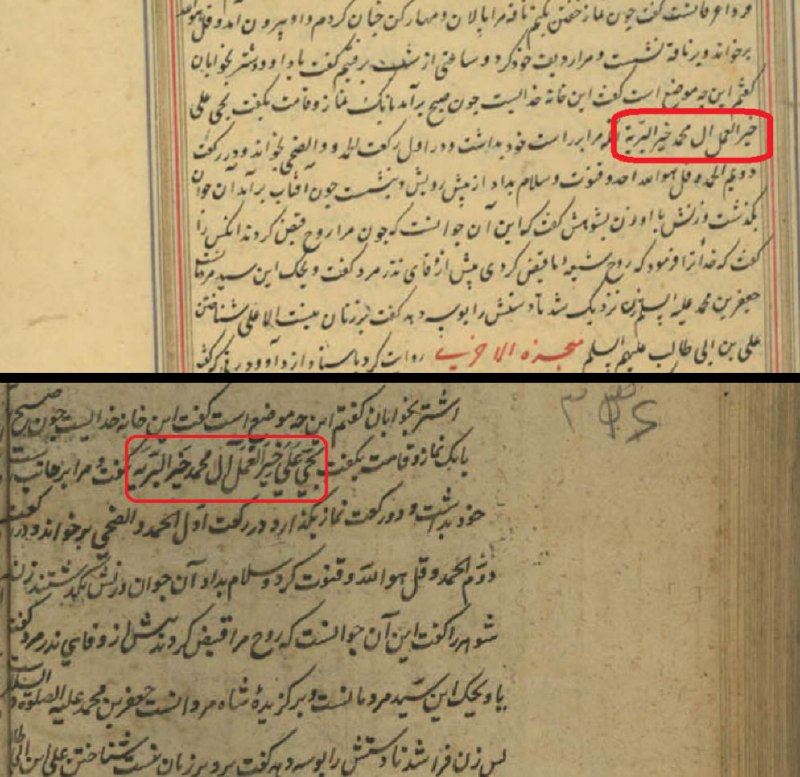 برخواند و بر ناقه نشست و مرا ردیف خود کرد و ساعتی از شب برفتیم گفت یا داود شتر بخوابان
گفتم این چه موضع است گفت این خانه خدایست چون صبح برآمد بانک نماز و قامت بگفت بحی علی
خیر العمل ال محمد خیر البریة مرا بر راست خود بداشت و در اول رکعت الحمد و والضحی بخواند و در رکعت
دویم الحمد و قل هو الله احد و قنوت و سلام بداد از پیش رویش و بنشست چون افتاب برآمد آن جوان
بگذشت و زنش با او زن بشوهرش گفت که این آن جوانست که چون مرا روح قبض کردند انکس را
گفت که خدا ترا فرمود که روح شیعه ما قبض کردی پیش از وفای نذر مرد گفت ویحک این سید مردمانست
جعفر بن محمد علیه السلم زن نزدیک شد تا دستش را بوسه دهد گفت بر زنان نیست الا علی شناختن
علی بن ابی طالب علیهم السلم معجزه الاخری روایت کرد باسناد از داود رقی که گفت
اشتر بخوابان گفتم این چه موضع است گفت این خانه خدایست چون صبح
بانک نماز و قامت بگفت بحی علی خیر العمل آل محمد خیر البریه گفت و مرا بر جانب راست
خود بداشت و دو رکعت نماز بگذارد در رکعت اول الحمد و الضحی برخواند و در رکعت
دوم الحمد و قل هو الله و قنوت کرد و سلام بداد آن جوان و زنش بگذشتند زن
شوهر را گفت این آن جوانست که روح مرا قبض کردند پیش از وفای نذر مرد گفت
یا ویحک این سید مردمانست و برگزیدهٔ شاه مردانست جعفر بن محمد علیه الصلوة و السلام
پس زن فرا شد تا دستش را بوسه دهد گفت بر زنان نیست شناختن علی ابن ابی